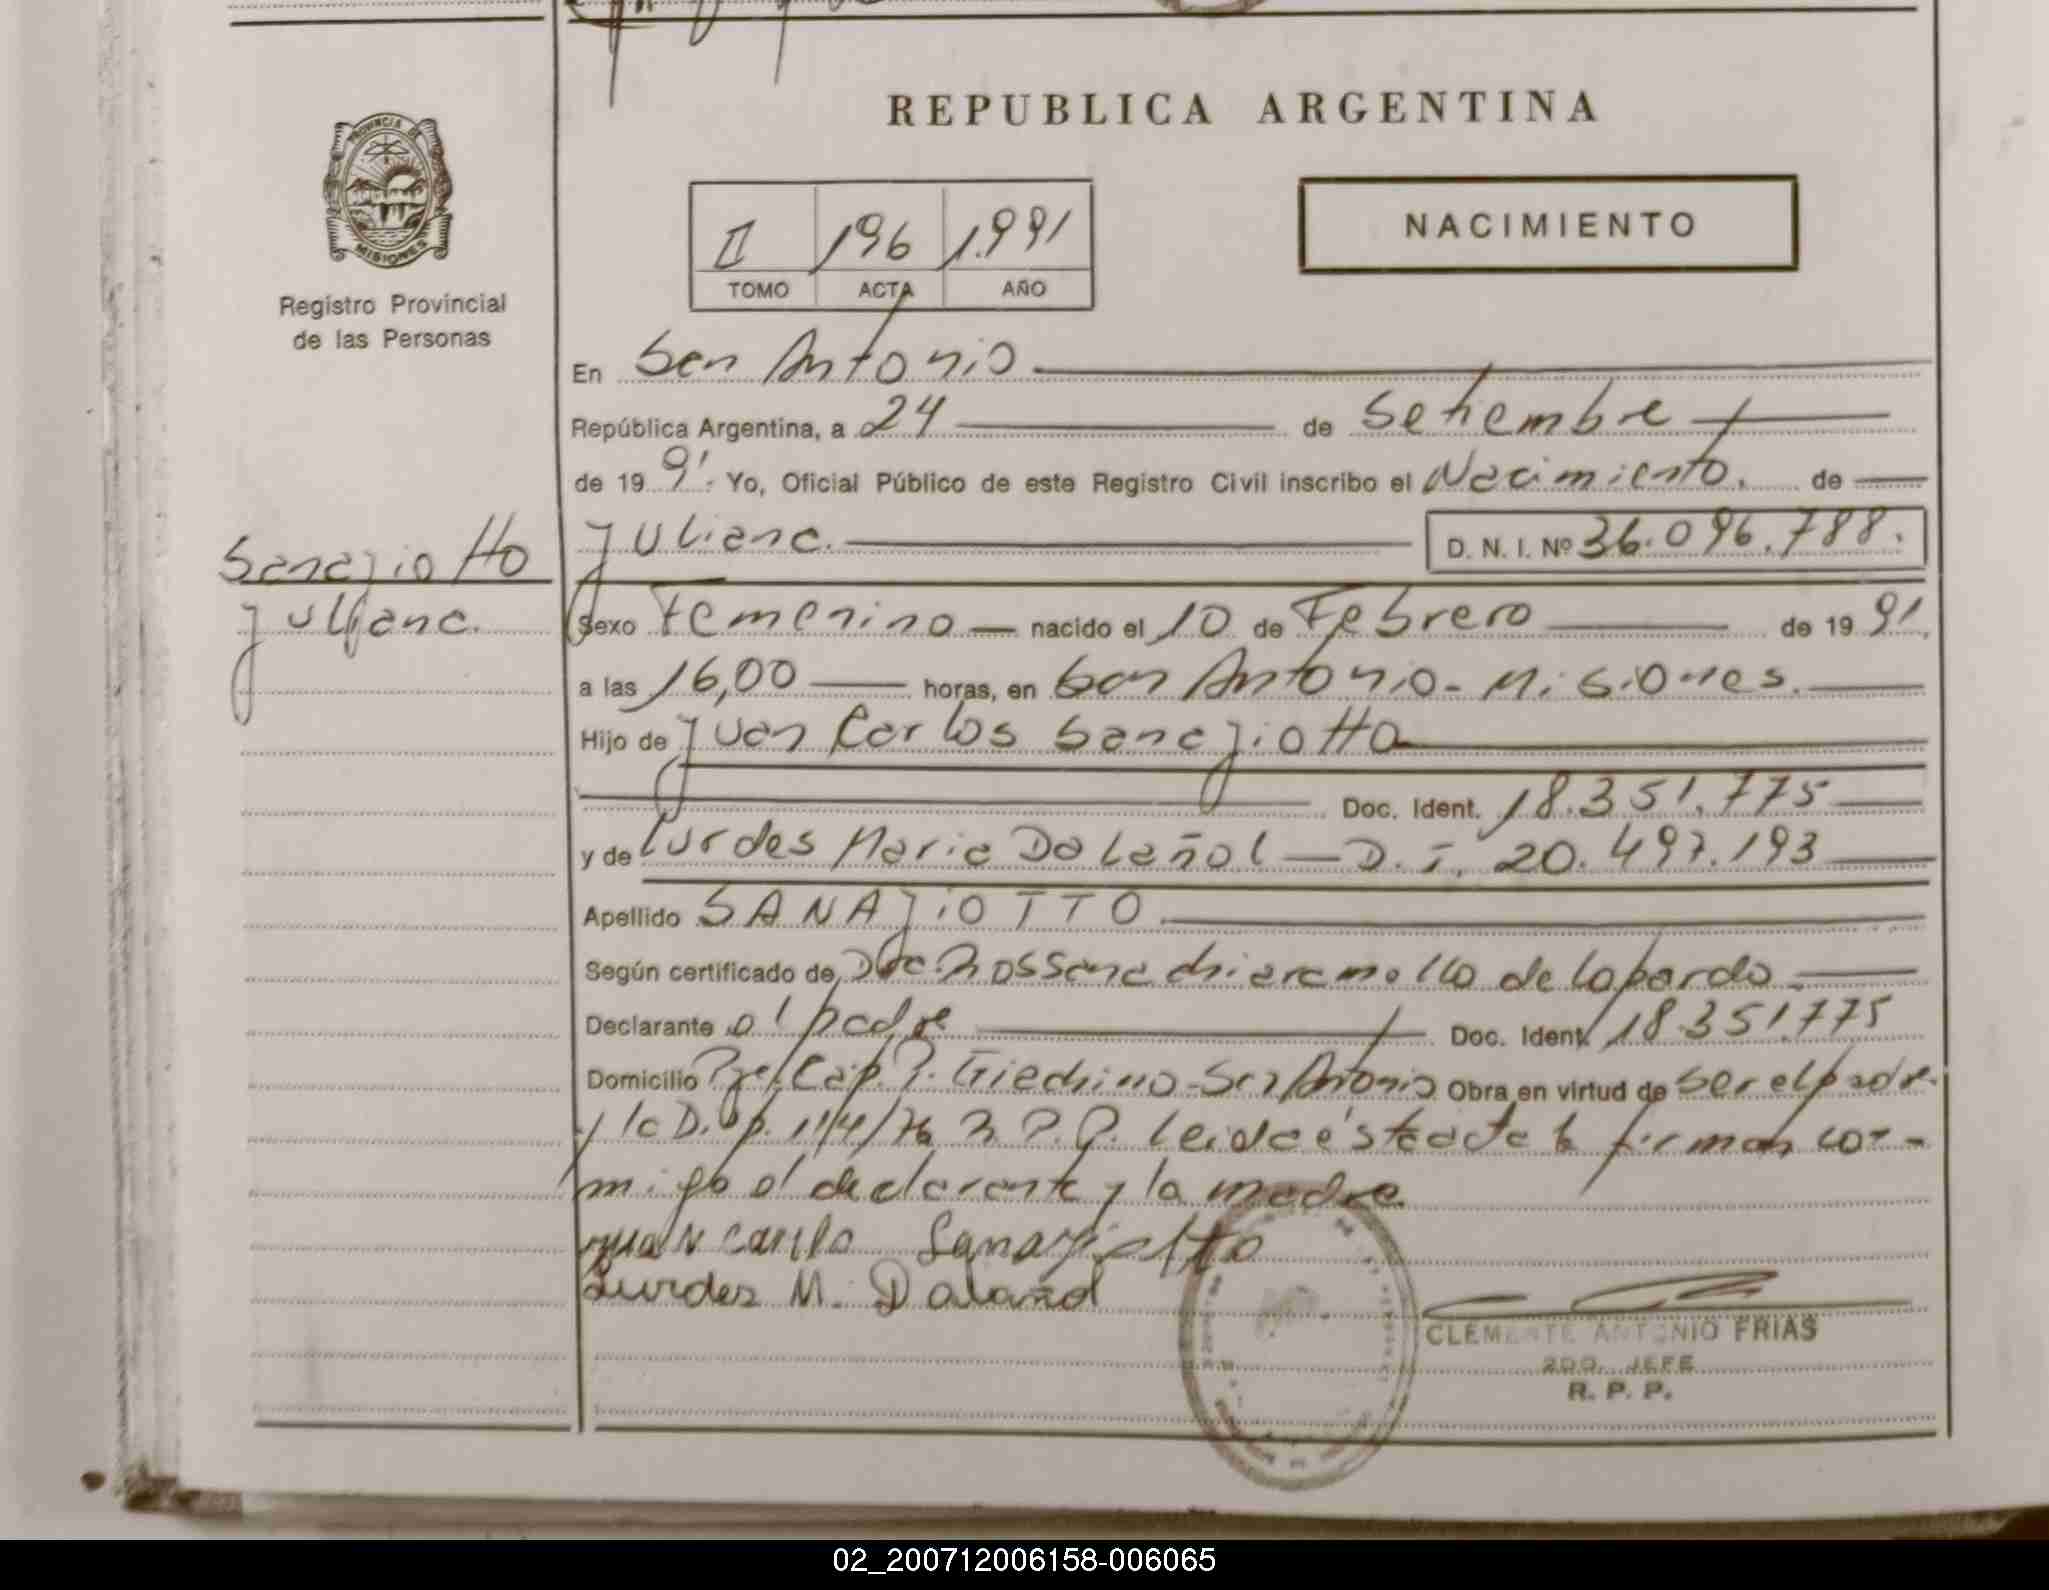 REPUBLICA ARGENTINA
PROVINCIA DE
MISIONES
Registro Provincial
de las Personas
NACIMIENTO
II 196 1.991
TOMO ACTA AÑO
En San Antonio
República Argentina, a 24 de Setiembre
de 1991. Yo, Oficial Público de este Registro Civil inscribo el Nacimiento. de
Sanajiotto
Juliana.
Juliana. D. N. I. Nº 36.096.788.
Sexo Femenino nacido el 10 de Febrero de 1991,
a las 16,00 horas, en San Antonio - Misiones.
Hijo de Juan Carlos Sanajiotto
Doc. Ident. 18.351.775
y de Lurdes Maria Dalañol - D.I. 20.497.193
Apellido SANAJIOTTO
Según certificado de Dra. Rossana chiaramello de lopardo.
Declarante el padre Doc. Ident. 18.351.775
Domicilio Pje. Cap. P. Giachino - San Antonio Obra en virtud de ser el padre
y la Disp. 114/76 R.P.P. Leida ésta acta la firman con-
migo el declarante y la madre
Juan Carlo Sanajiotto
Lurdes M. Dalañol
CLEMENTE ANTONIO FRIAS
2DO. JEFE
R. P. P.
02_200712006158-006065